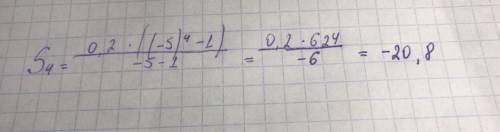 S₄ = (0,2 · ((-5)⁴ - 1)) / (-5 - 1) = (0,2 · 624) / (-6) = -20,8